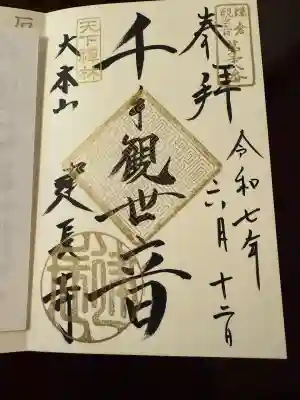 奉拝
令和七年
六月十二日
千手観世音
天下禅林
大本山
建長寺